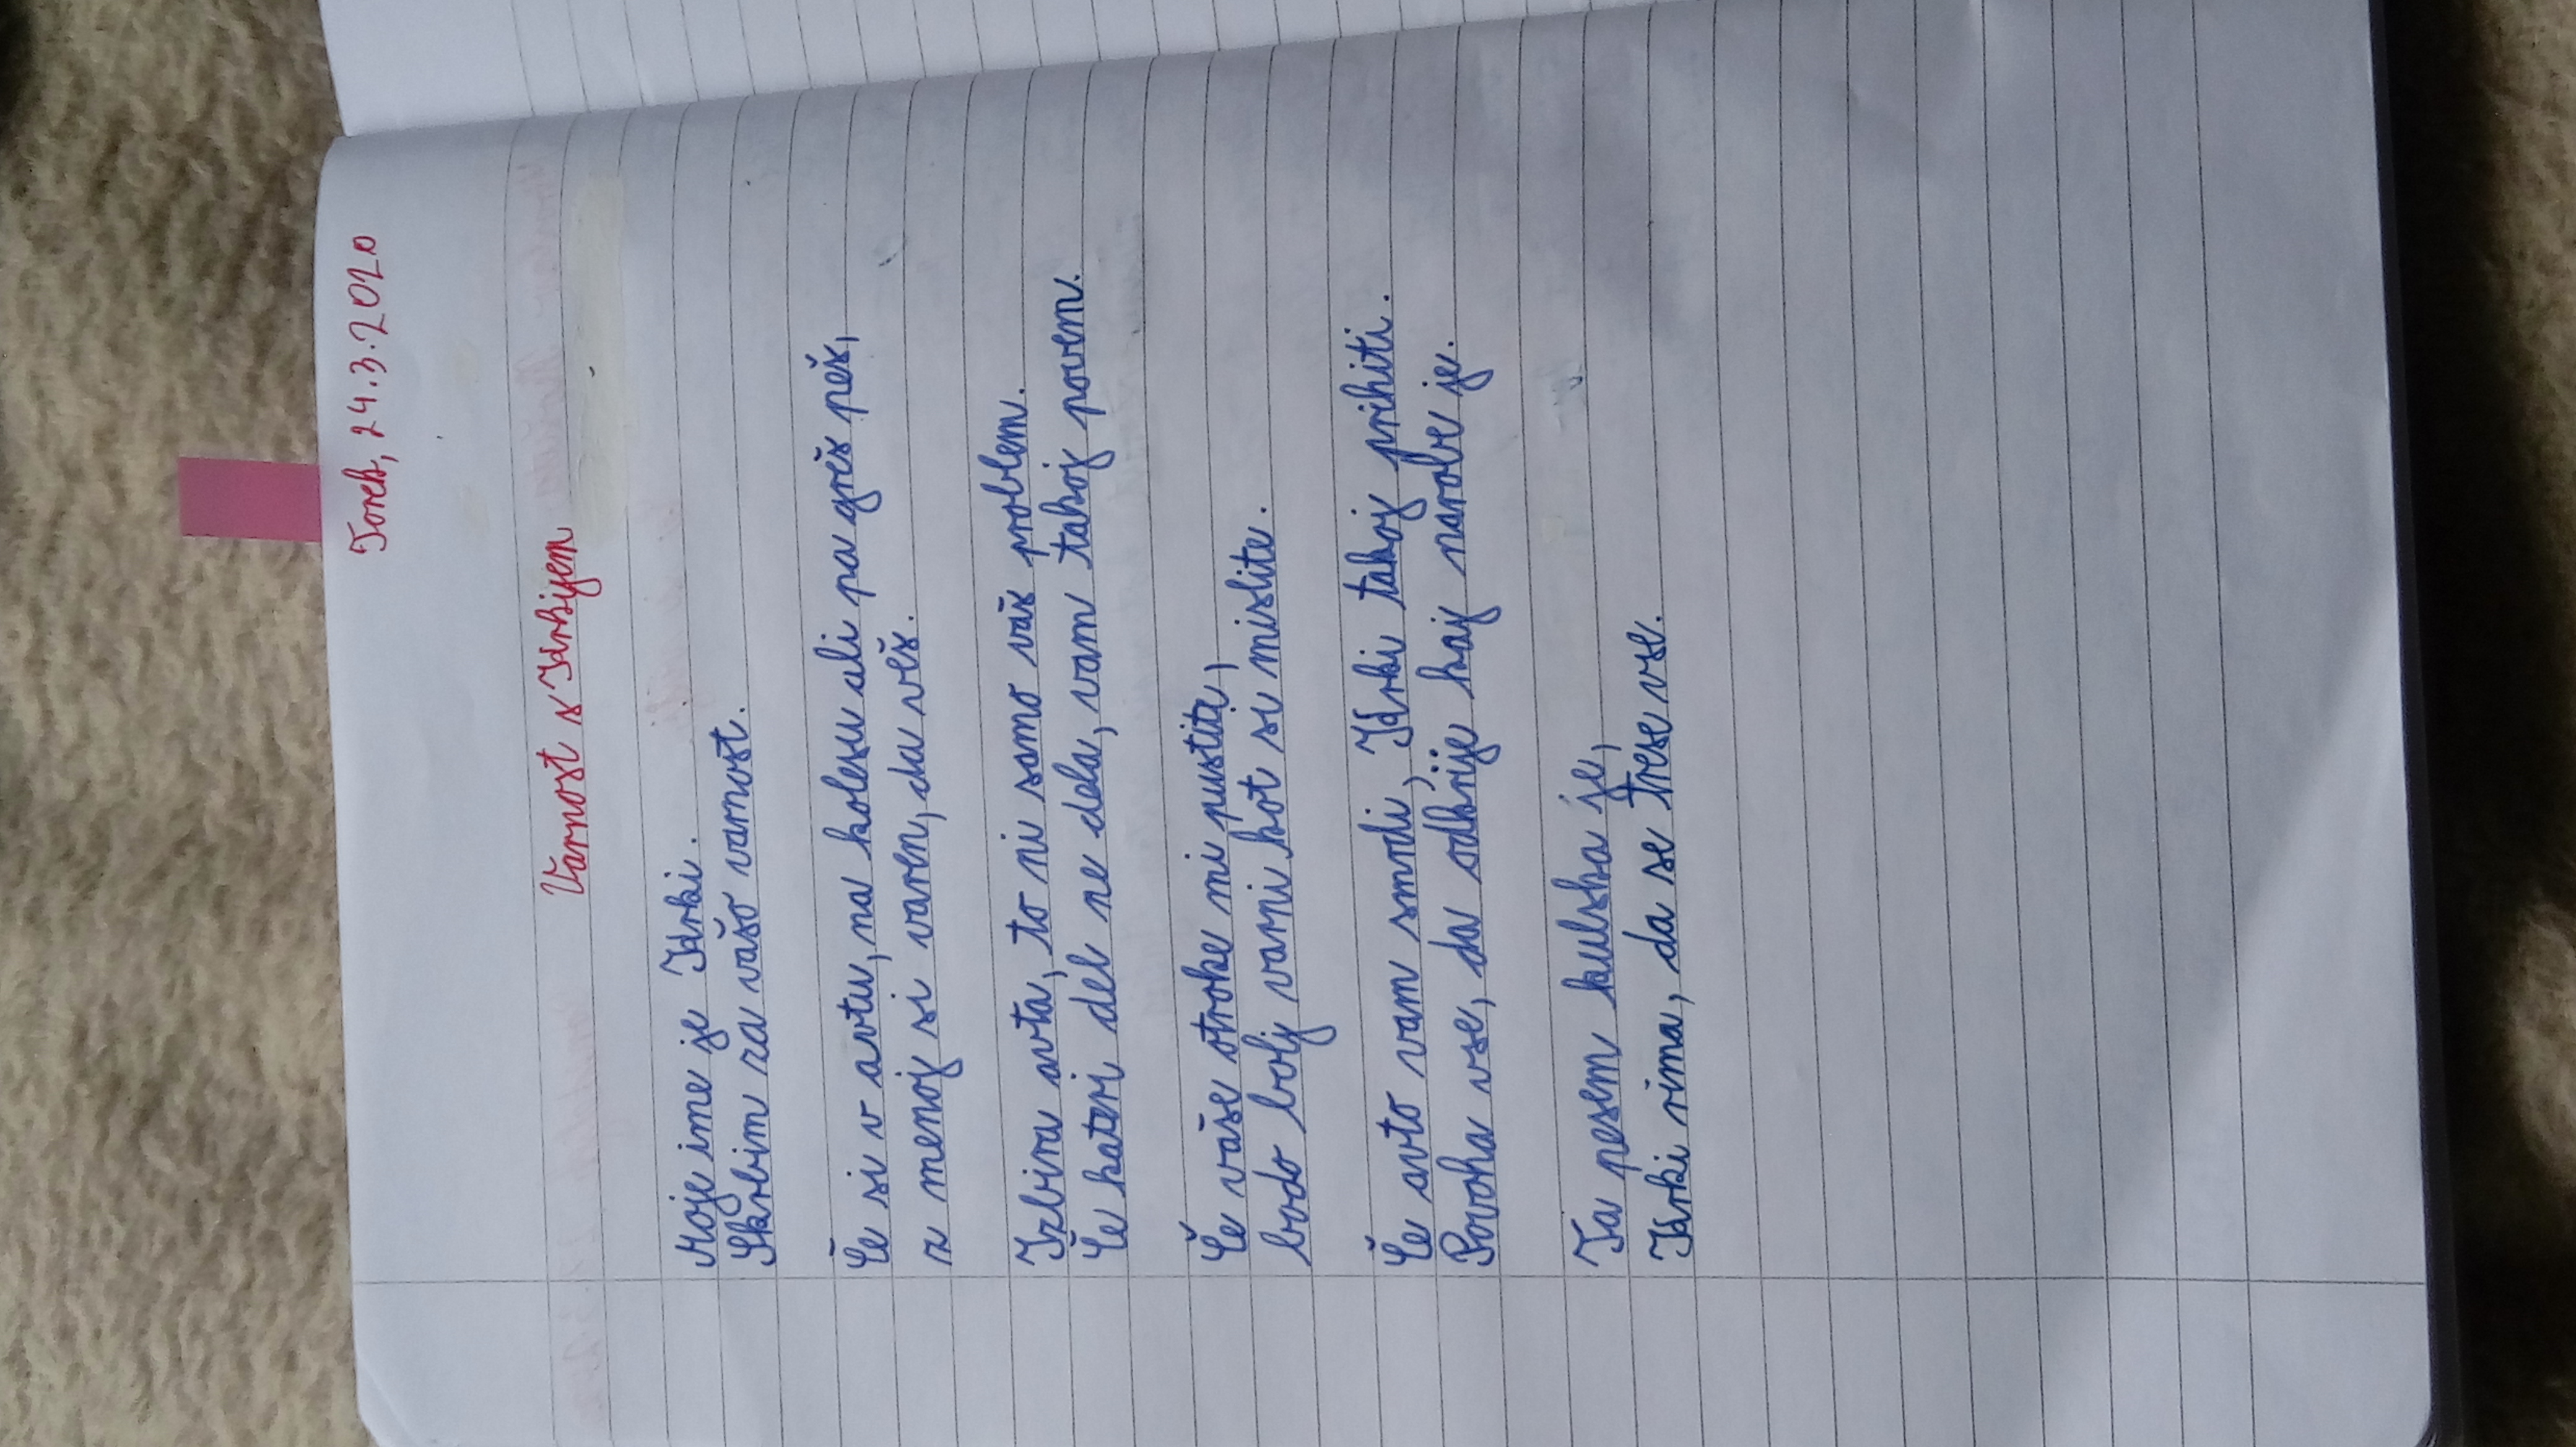 Torek, 24.3.2020
Varnost s
Moje ime je
Skrbim za vašo varnost.
Če si v avtu, na kolesu ali pa greš peš,
z menoj si varen, da veš.
Izbira avta, to ni samo vaš problem.
Če kateri del ne dela, vam takoj povem.
Če vaše otroke mi pustite,
bodo bolj varni kot si mislite.
Če avto vam smrdi, takoj prihiti.
Povoha vse, da odkrije kaj narobe je.
Ta pesem kulska je,
rima, da se trese vse.